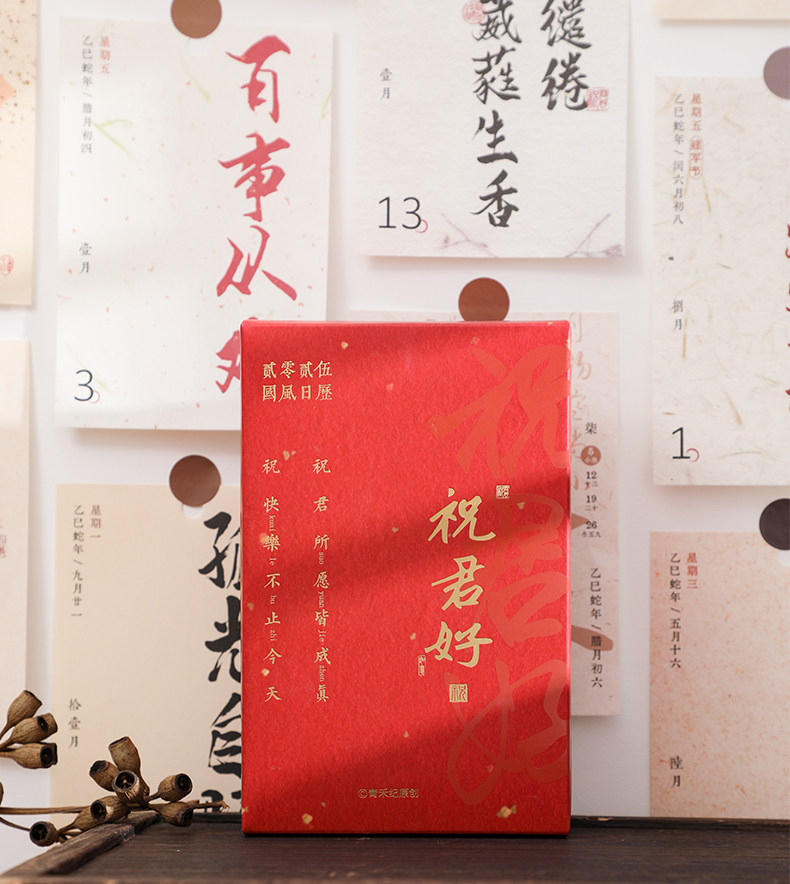 星期五
乙巳蛇年/腊月初四
壹月
百事从
3
繾绻
葳蕤生香
壹月
13
星期五
乙巳蛇年/闰六月初八
捌月
1
貳零貳伍
國風日歷
祝君所愿皆成真
祝快樂不止今天
祝君好
祝君好
©青禾纪原创
柒
5
12
19
26
乙巳蛇年/腊月初六
星期一
乙巳蛇年/九月廿一
拾壹月
孤光自
星期三
乙巳蛇年/五月十六
陸月